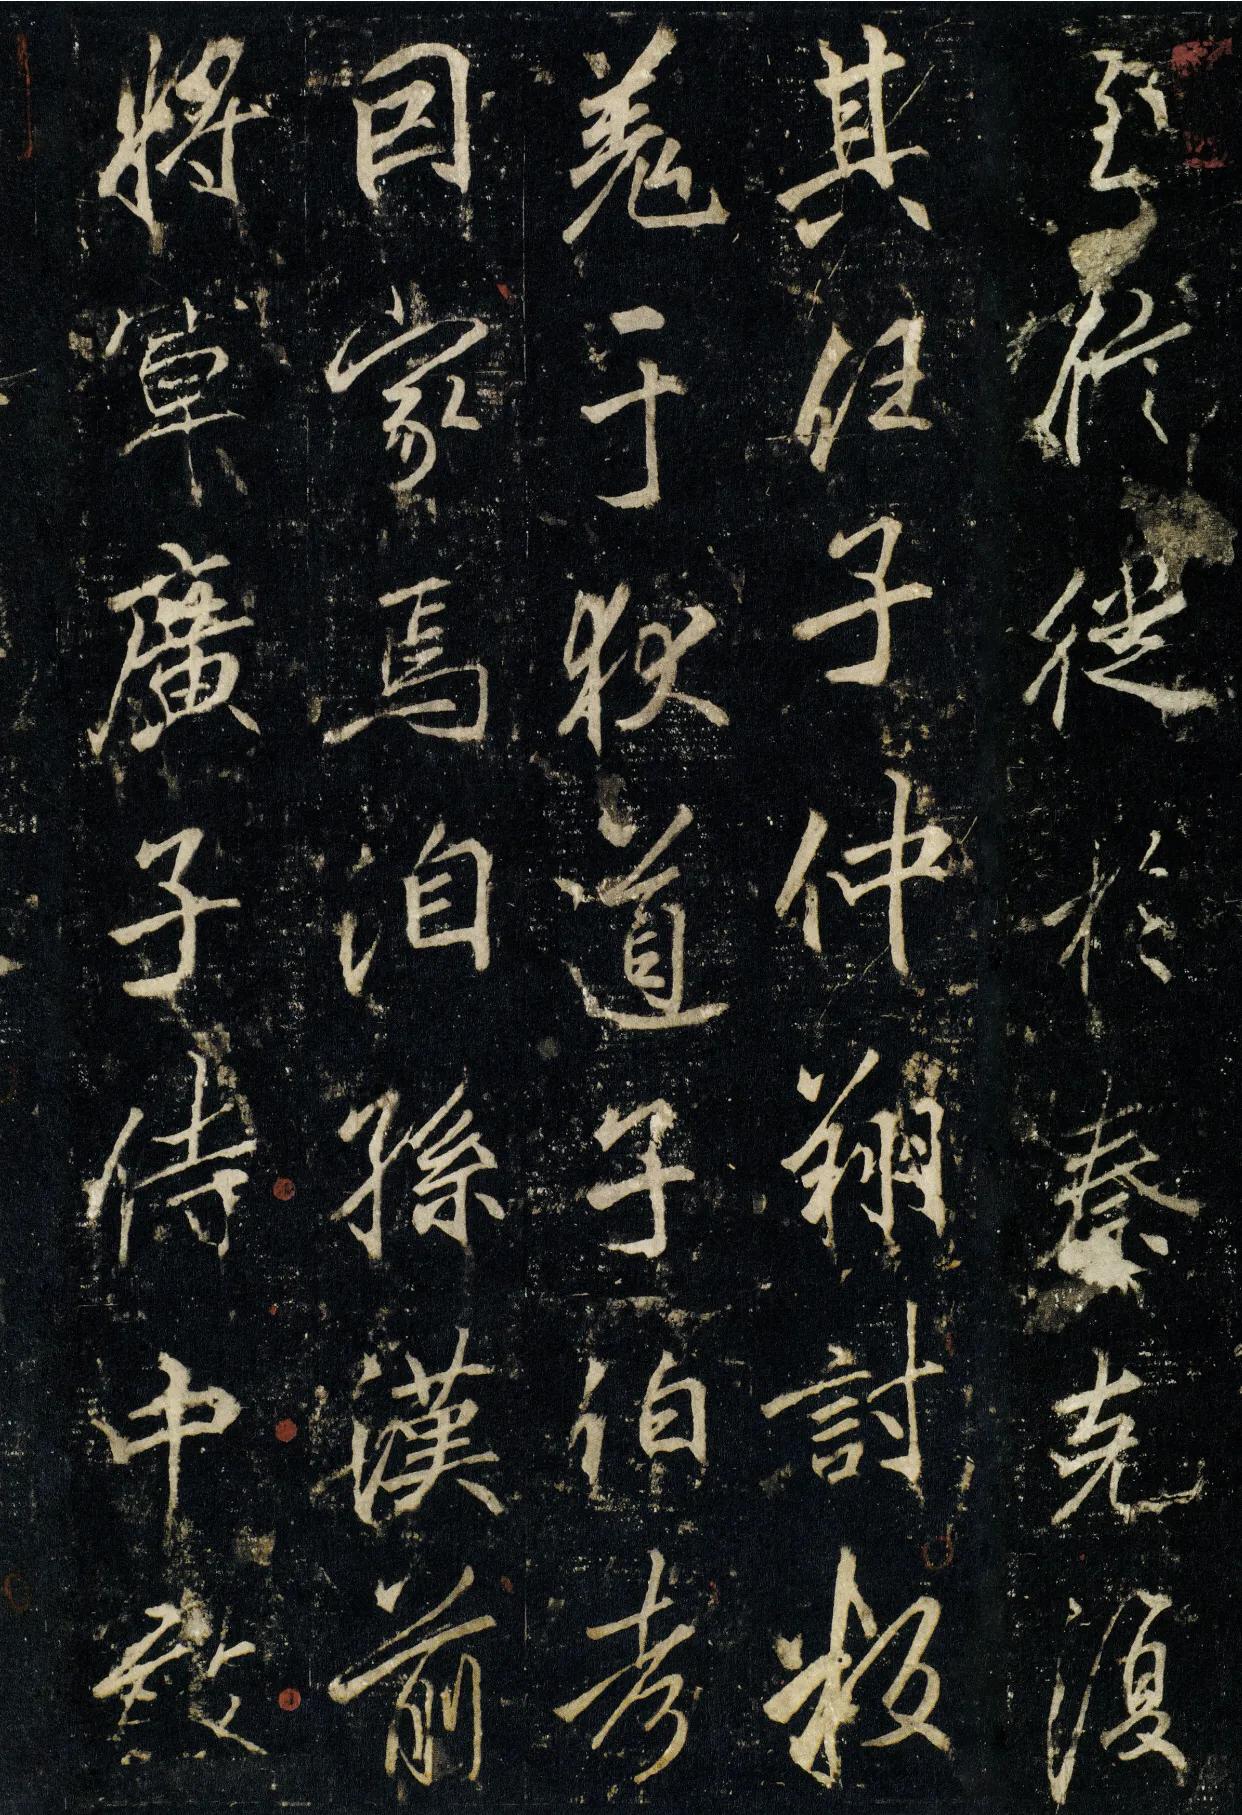 至於徙於秦克復
其任子仲翔討叛
羌于狄道子伯考
因家焉洎孫漢前
將軍廣子侍中敢